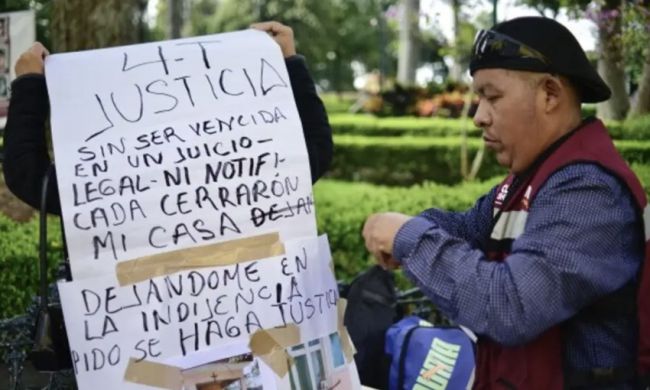 4-T
JUSTICIA
SIN SER VENCIDA
EN UN JUICIO-
LEGAL-NI NOTIFI-
CADA CERRARÓN
MI CASA DEJAN
DEJÁNDOME EN
LA INDIJENCIA
PIDO SE HAGA JUSTICIA